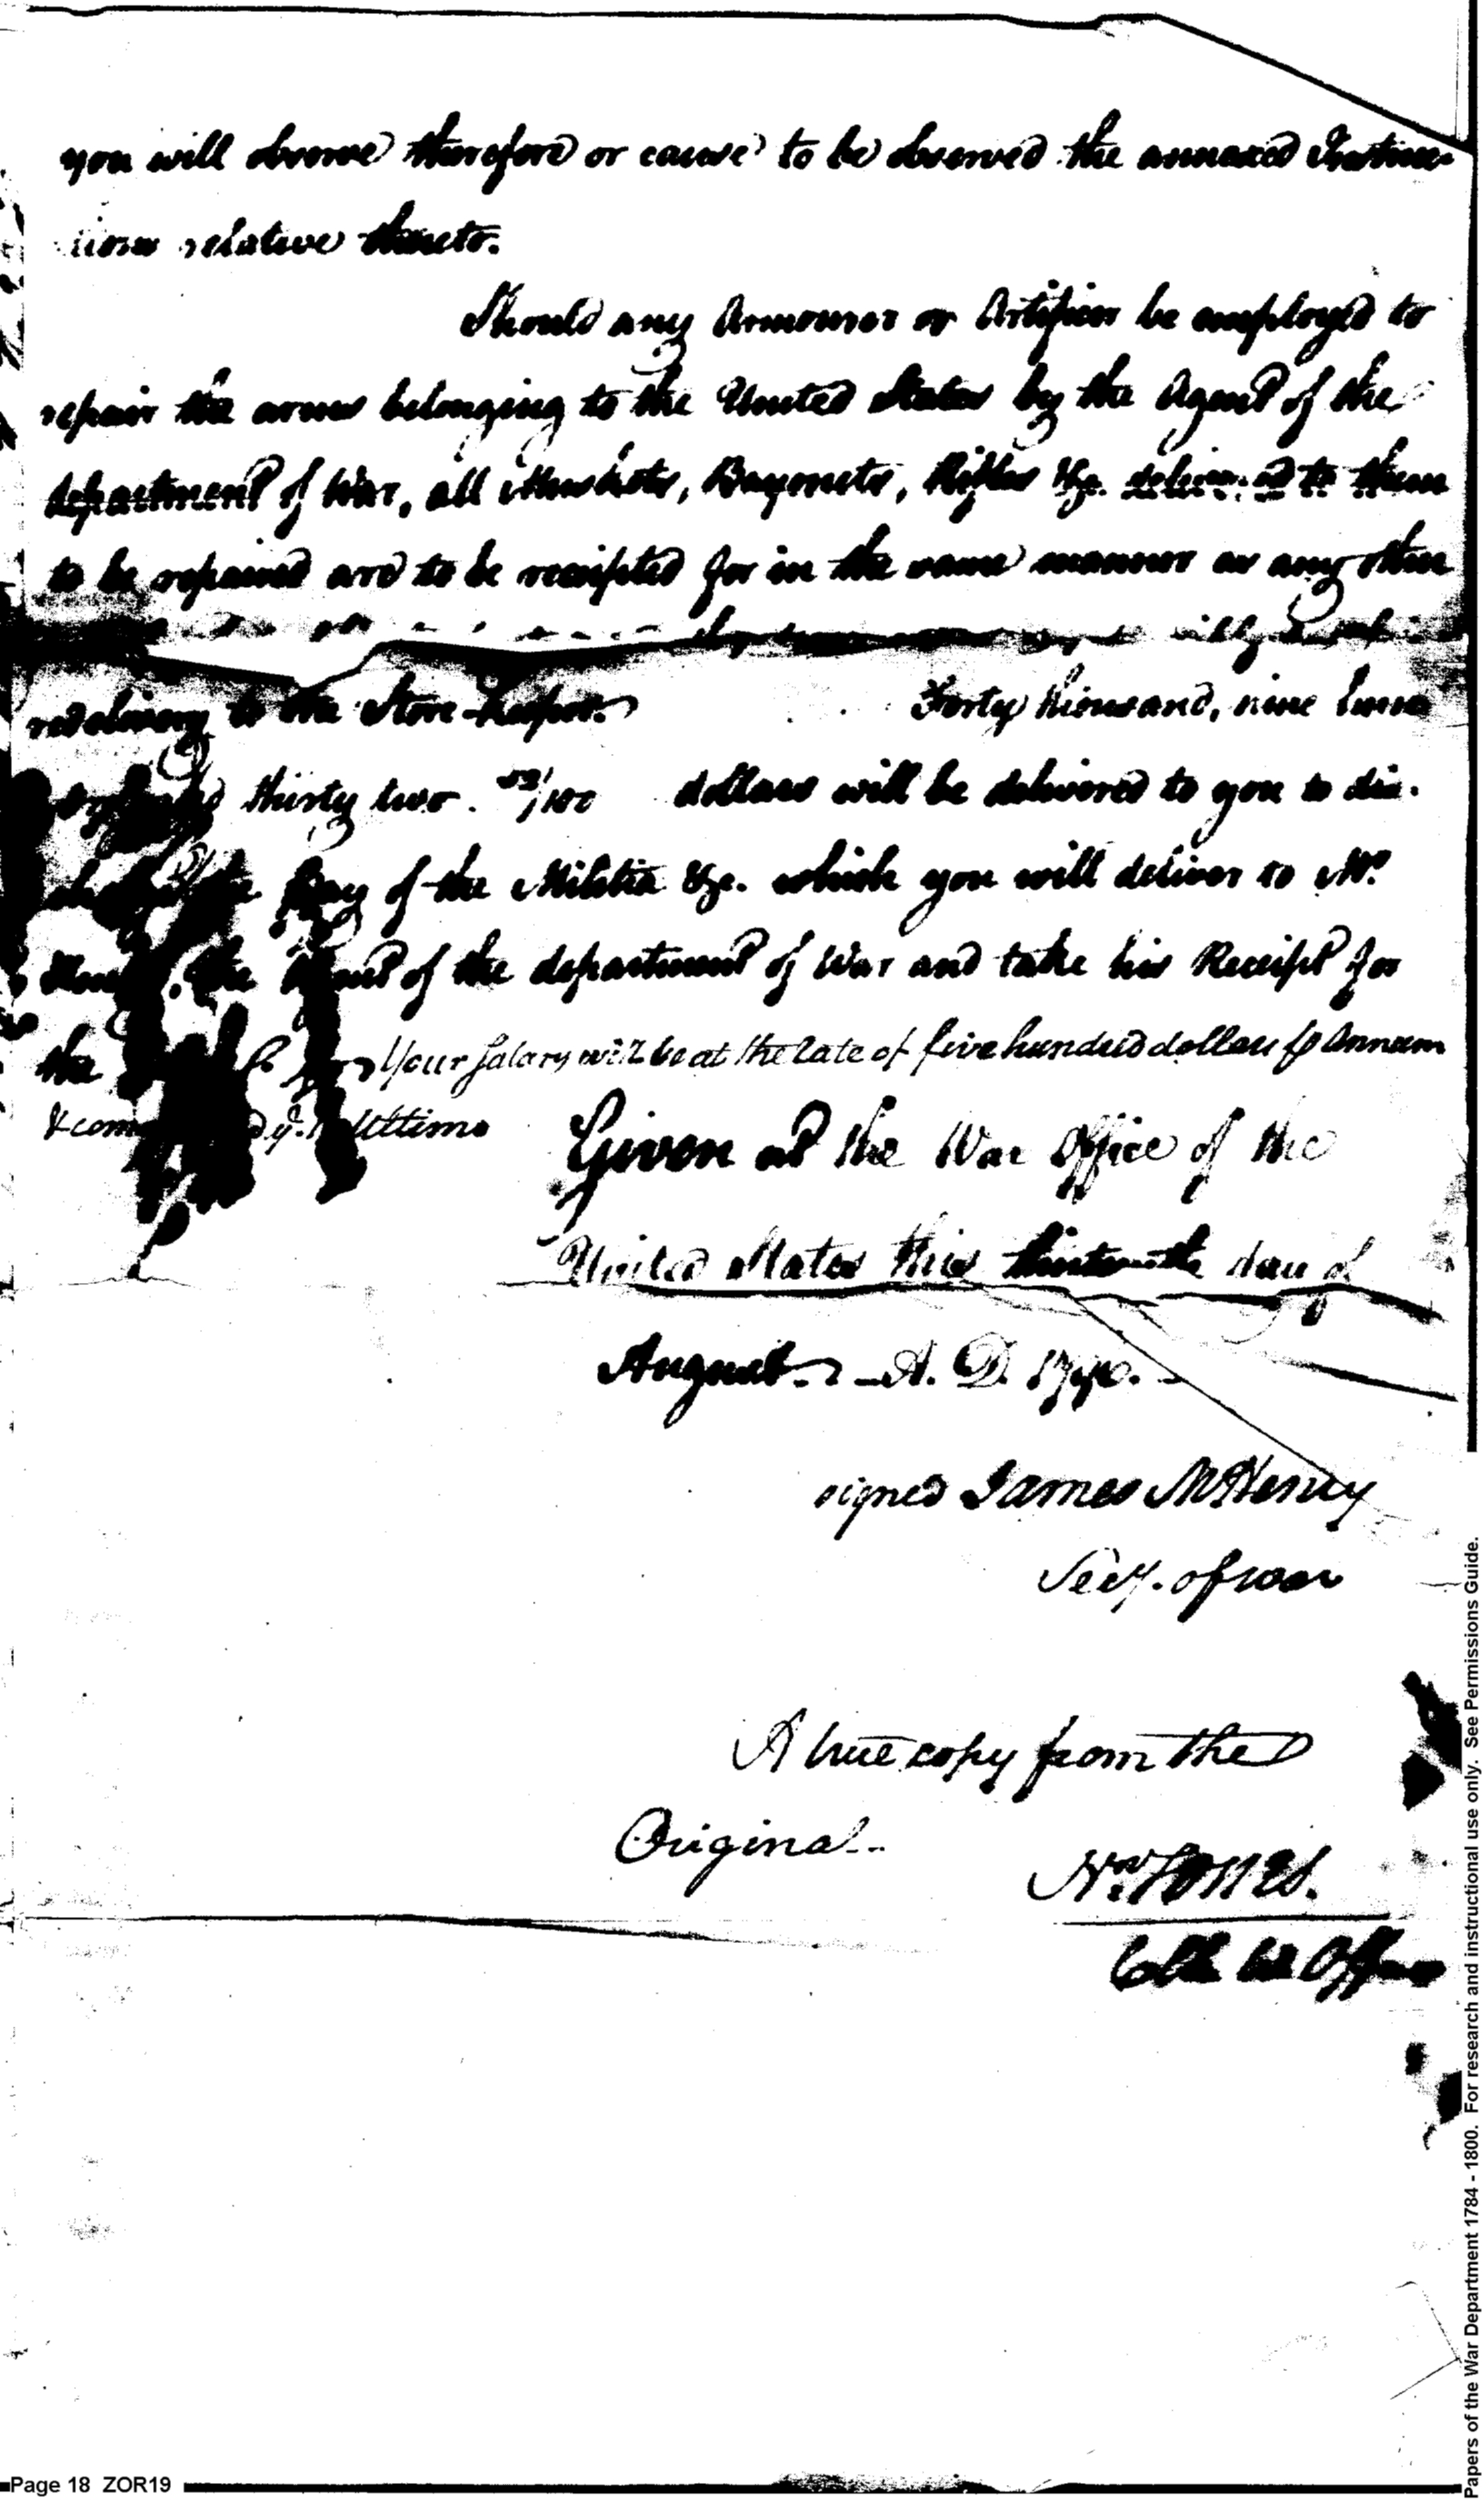 you will observe therefore or cause to be observed the annexed Instruc
tions relative thereto.
Should any Armourer or Artificer be employed to
repair the arms belonging to the United States by the Agent of the
department of War, all Muskets, Bayonets, Rifles &c. delivered to them
to be repaired are to be receipted for in the same manner as any other
redelivery to the Store-keeper. Forty thousand, nine hund
thirty two. /100 dollars will be delivered to you to dis.
Pay of the Militia &c. which you will deliver to Mr.
the Agent of the department of War and take his Receipt for
the Your Salary will be at the rate of five hundred dollars ⅌ Annum
& Ultimo
Given at the War Office of the
United States this thirteenth day of
August A. D.
signed James McHenry
Secy. of war
A true copy from the
Original
Wm Jones.
Page 18 ZOR19
Papers of the War Department 1784 - 1800. For research and instructional use only. See Permissions Guide.